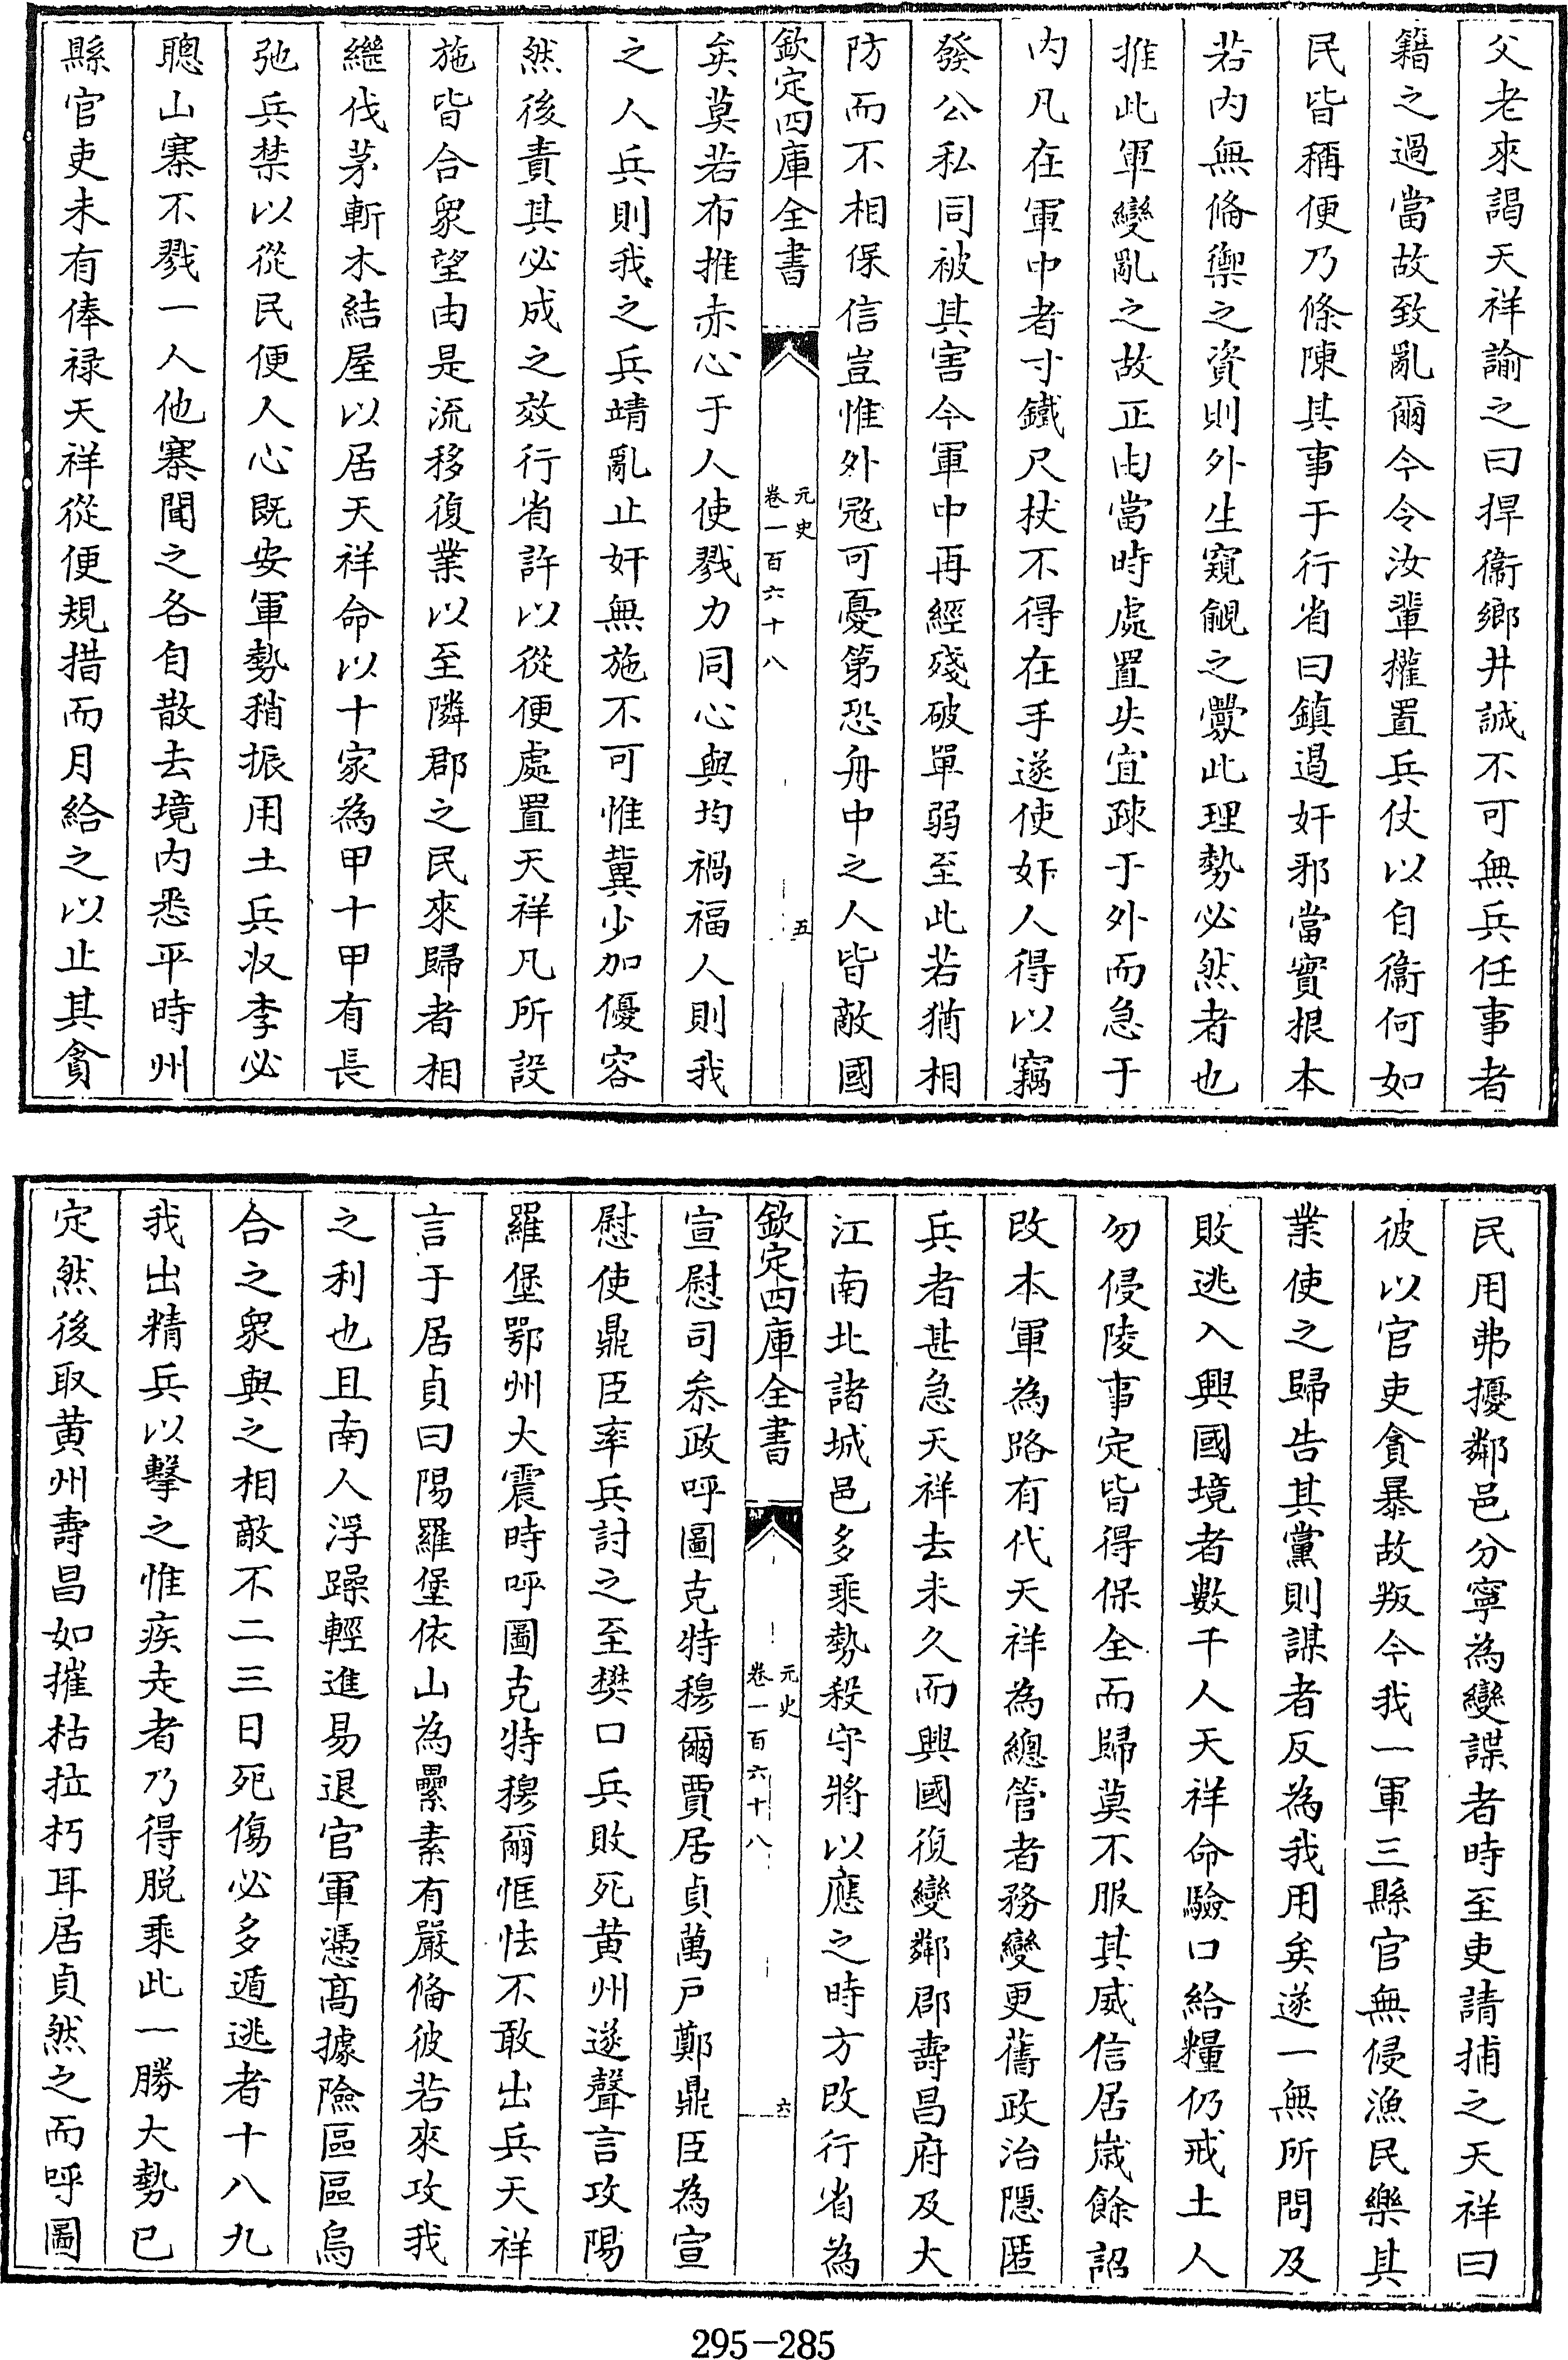 父老來謁天祥諭之曰捍衞鄉井誠不可無兵任事者
籍之過當故致亂爾今令汝輩權置兵仗以自衞何如
民皆稱便乃條陳其事于行省曰鎮遏奸邪當實根本
若内無備禦之資則外生窺覦之釁此理勢必然者也
推此軍變亂之故正由當時處置失宜疎于外而急于
内凡在軍中者寸鐵尺杖不得在手遂使奸人得以竊
發公私同被其害今軍中再經殘破單弱至此若猶相
防而不相保信豈惟外冦可憂第恐舟中之人皆敵國
欽定四庫全書
元史
卷一百六十八
五
矣莫若布推赤心于人使戮力同心與均禍福人則我
之人兵則我之兵靖亂止奸無施不可惟冀少加優容
然後責其必成之效行省許以從便處置天祥凡所設
施皆合衆望由是流移復業以至隣郡之民來歸者相
繼伐茅斬木結屋以居天祥命以十家為甲十甲有長
弛兵禁以從民便人心既安軍勢稍振用土兵收李必
聰山寨不戮一人他寨聞之各自散去境内悉平時州
縣官吏未有俸禄天祥從便規措而月給之以止其貪
民用弗擾鄰邑分寧為變諜者時至吏請捕之天祥曰
彼以官吏貪暴故叛今我一軍三縣官無侵漁民樂其
業使之歸告其黨則諜者反為我用矣遂一無所問及
敗逃入興國境者數千人天祥命驗口給糧仍戒土人
勿侵陵事定皆得保全而歸莫不服其威信居嵗餘詔
改本軍為路有代天祥為總管者務變更舊政治隠匿
兵者甚急天祥去未久而興國復變鄰郡壽昌府及大
江南北諸城邑多乘勢殺守將以應之時方改行省為
欽定四庫全書
元史
卷一百六十八
六
宣慰司叅政呼圖克特穆爾賈居貞萬戸鄭鼎臣為宣
慰使鼎臣率兵討之至樊口兵敗死黄州遂聲言攻陽
羅堡鄂州大震時呼圖克特穆爾恇怯不敢出兵天祥
言于居貞曰陽羅堡依山為壘素有嚴備彼若來攻我
之利也且南人浮躁輕進易退官軍憑髙據險區區烏
合之衆與之相敵不二三日死傷必多遁逃者十八九
我出精兵以擊之惟疾走者乃得脱乘此一勝大勢已
定然後取黄州壽昌如摧枯拉朽耳居貞然之而呼圖
295-285